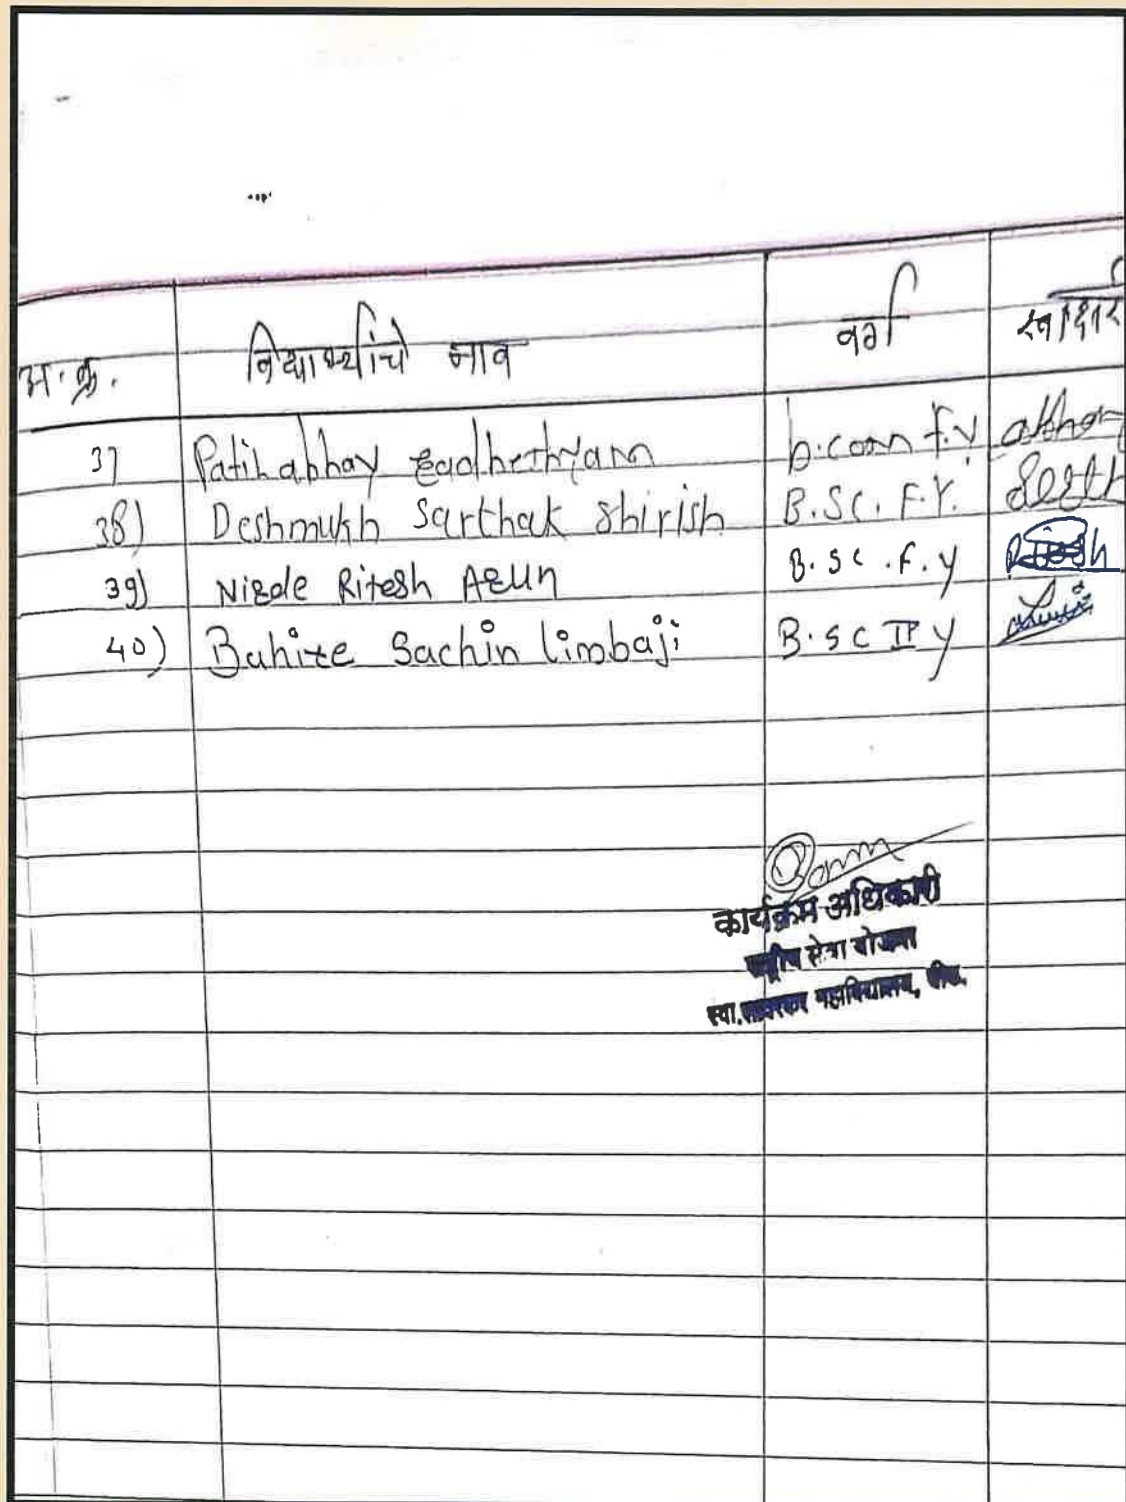 अ.क्र. विद्यार्थ्यांचे नाव वर्ग स्वाक्षर
37 Patil abhay radheshyam b.com f.y
38) Deshmukh Sarthak Shirish B.Sc. F.Y.
39) Nirde Ritesh Arun B.sc.f.y Ritesh
40) Bahire Sachin limbaji B.sc II y
कार्यक्रम अधिकारी
राष्ट्रीय सेवा योजना
स्वा.सावरकर महाविद्यालय, बीड.